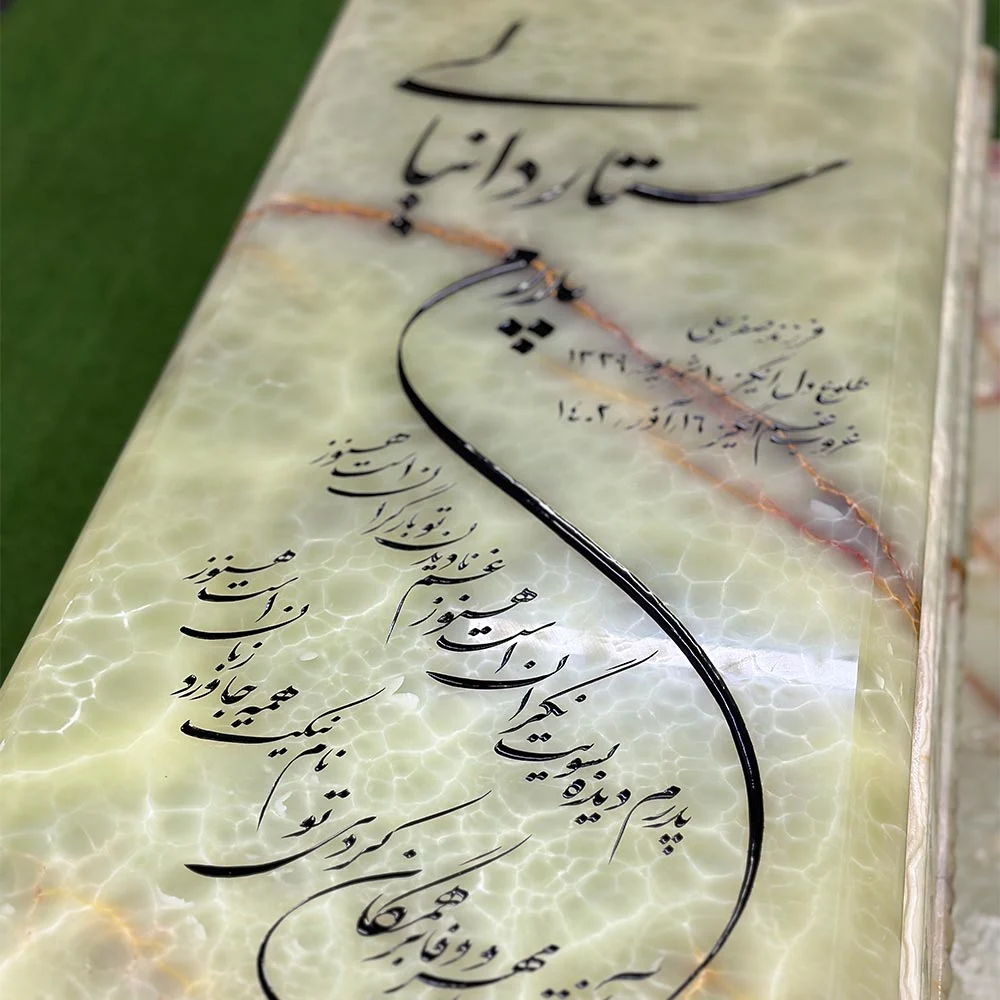 ستار دانیالی
پدرم
فرزند صفرعلی
طلوع دل انگیز ۱۰ شهریور ۱۳۳۹
غروب غم انگیز ۱۶ آذر ۱۴۰۲
پدرم دیده بسویت نگران است هنوز
غم نادیدن تو بار گران است هنوز
آنقدر مهر و وفا بر همگان کردی تو
نام نیکت همه جا ورد زبان است هنوز